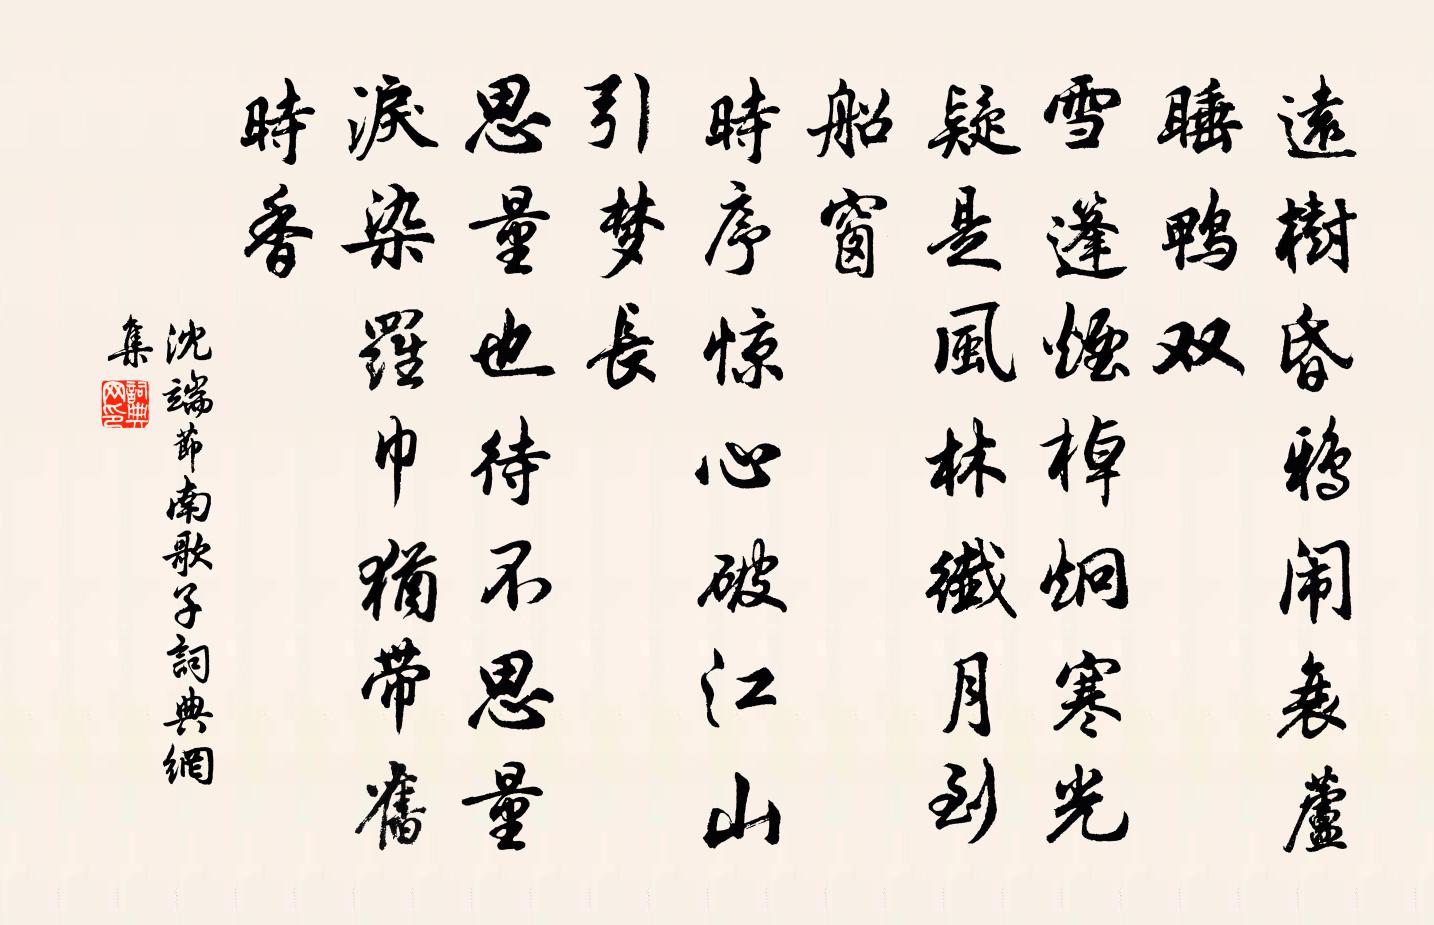 遠樹昏鴉闹衰蘆
睡鴨双
雪蓬煙棹炯寒光
疑是風林纖月到
船窗
時序惊心破江山
引梦長
思量也待不思量
淚染羅巾猶带舊
時香
沈端節南歌子詞典網
集
詞典网印